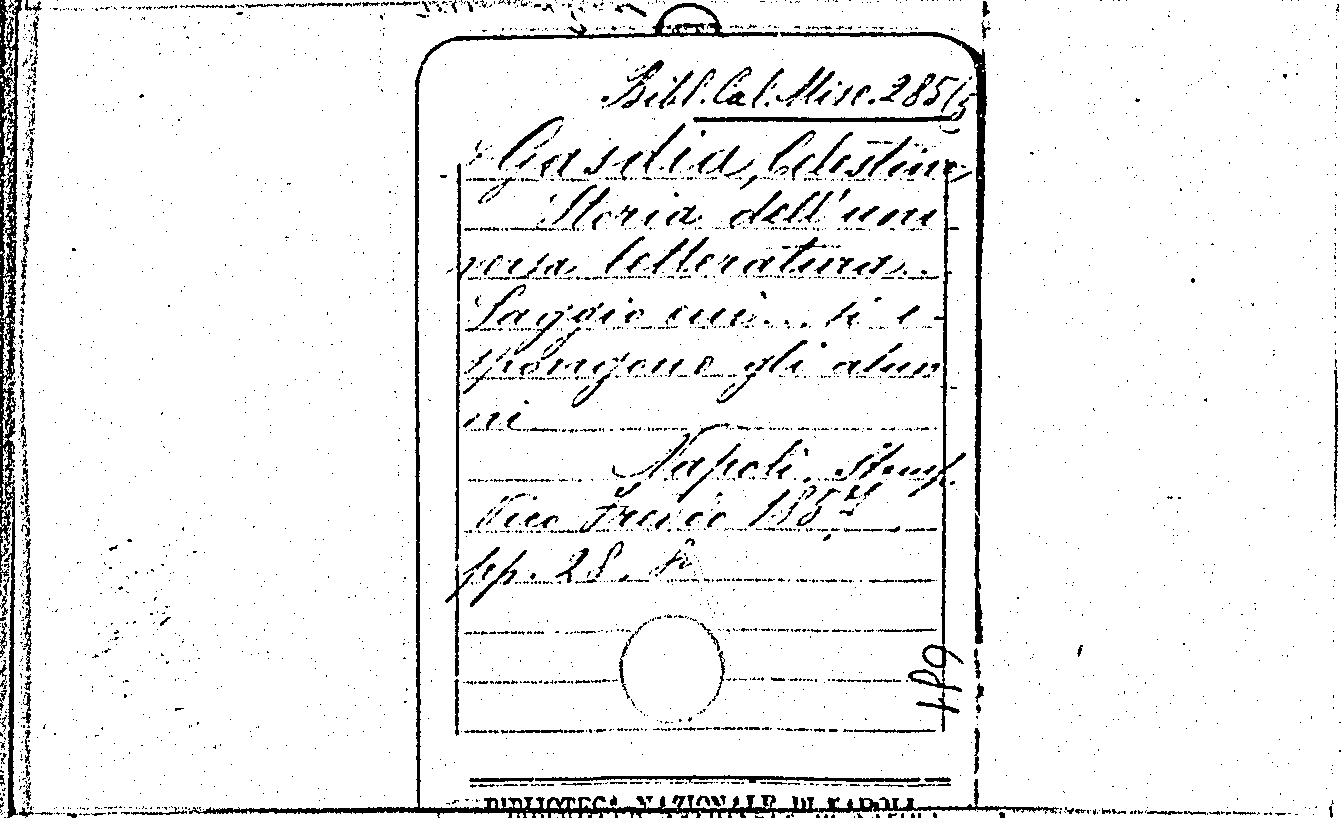 Bibl. Cal. Misc. 285(5
Gasdia, Celestino
Storia dell'uni
versa letteratura.
Saggio cui... si e-
spongono gli alun
ni
Napoli, Stamp.
Vico Freddo 1857
pp. 28. 8°
BIBLIOTECA NAZIONALE DI NAPOLI